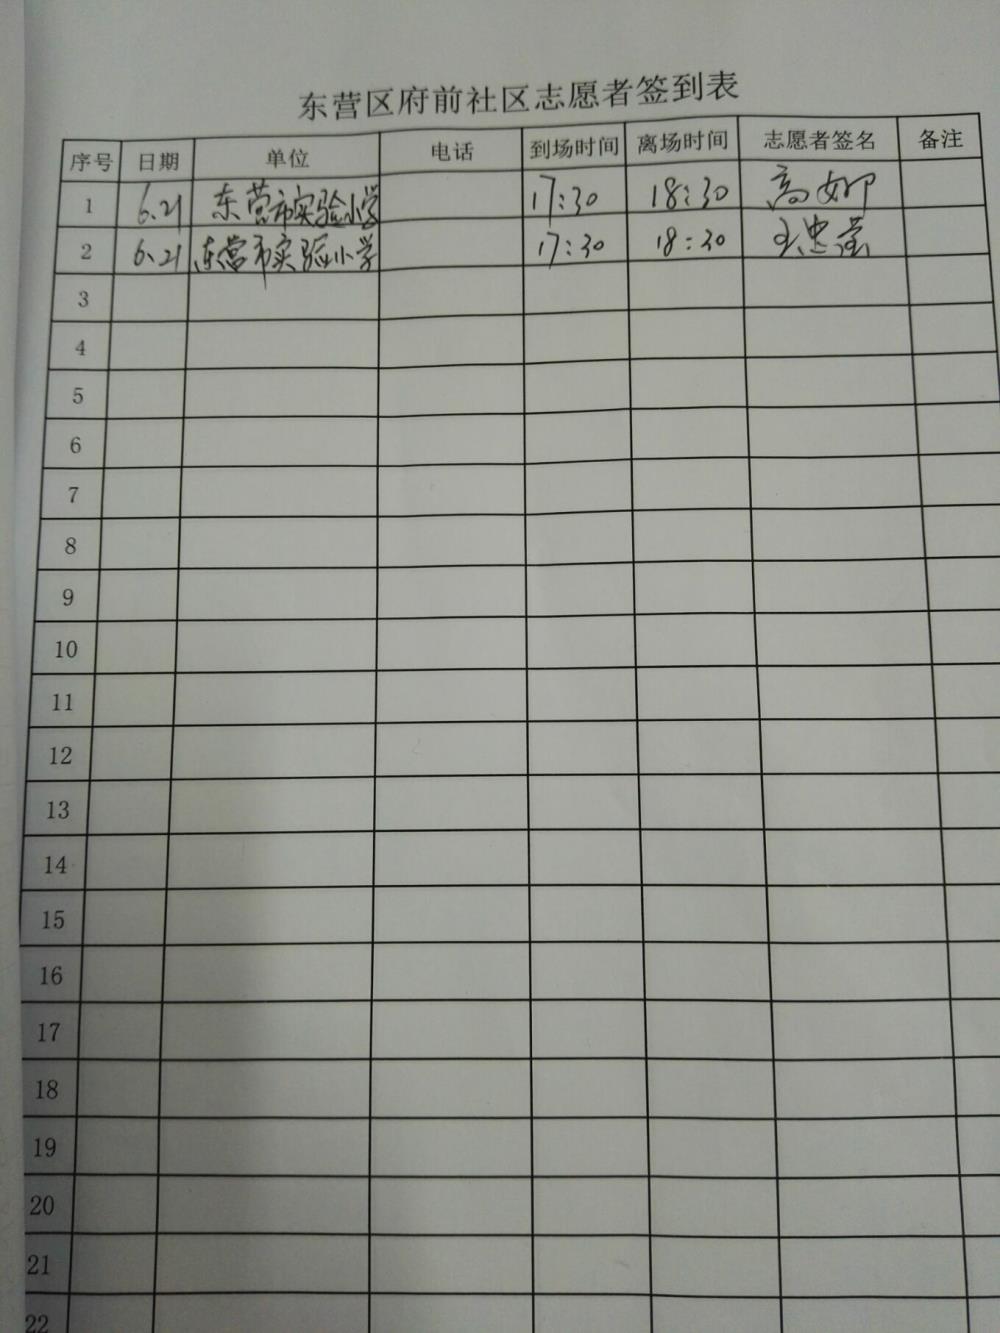 东营区府前社区志愿者签到表
序号 日期 单位 电话 到场时间 离场时间 志愿者签名 备注
1 6.21 东营市实验小学 17:30 18:30 高娜
2 6.21 东营市实验小学 17:30 18:30 王忠
3
4
5
6
7
8
9
10
11
12
13
14
15
16
17
18
19
20
21
22